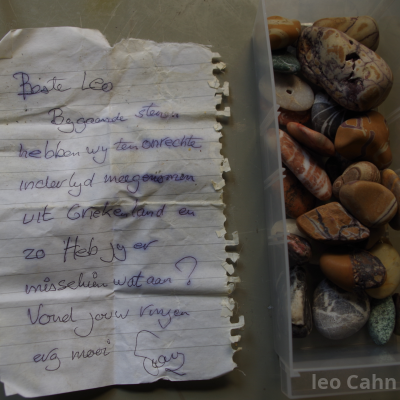 Beste Leo
Bijgaande stenen
hebben wij ten onrechte
indertijd meegenomen
uit Griekenland en
zo Heb jij er
misschien wat aan?
Vond jouw ringen
erg mooi
leo Cahn